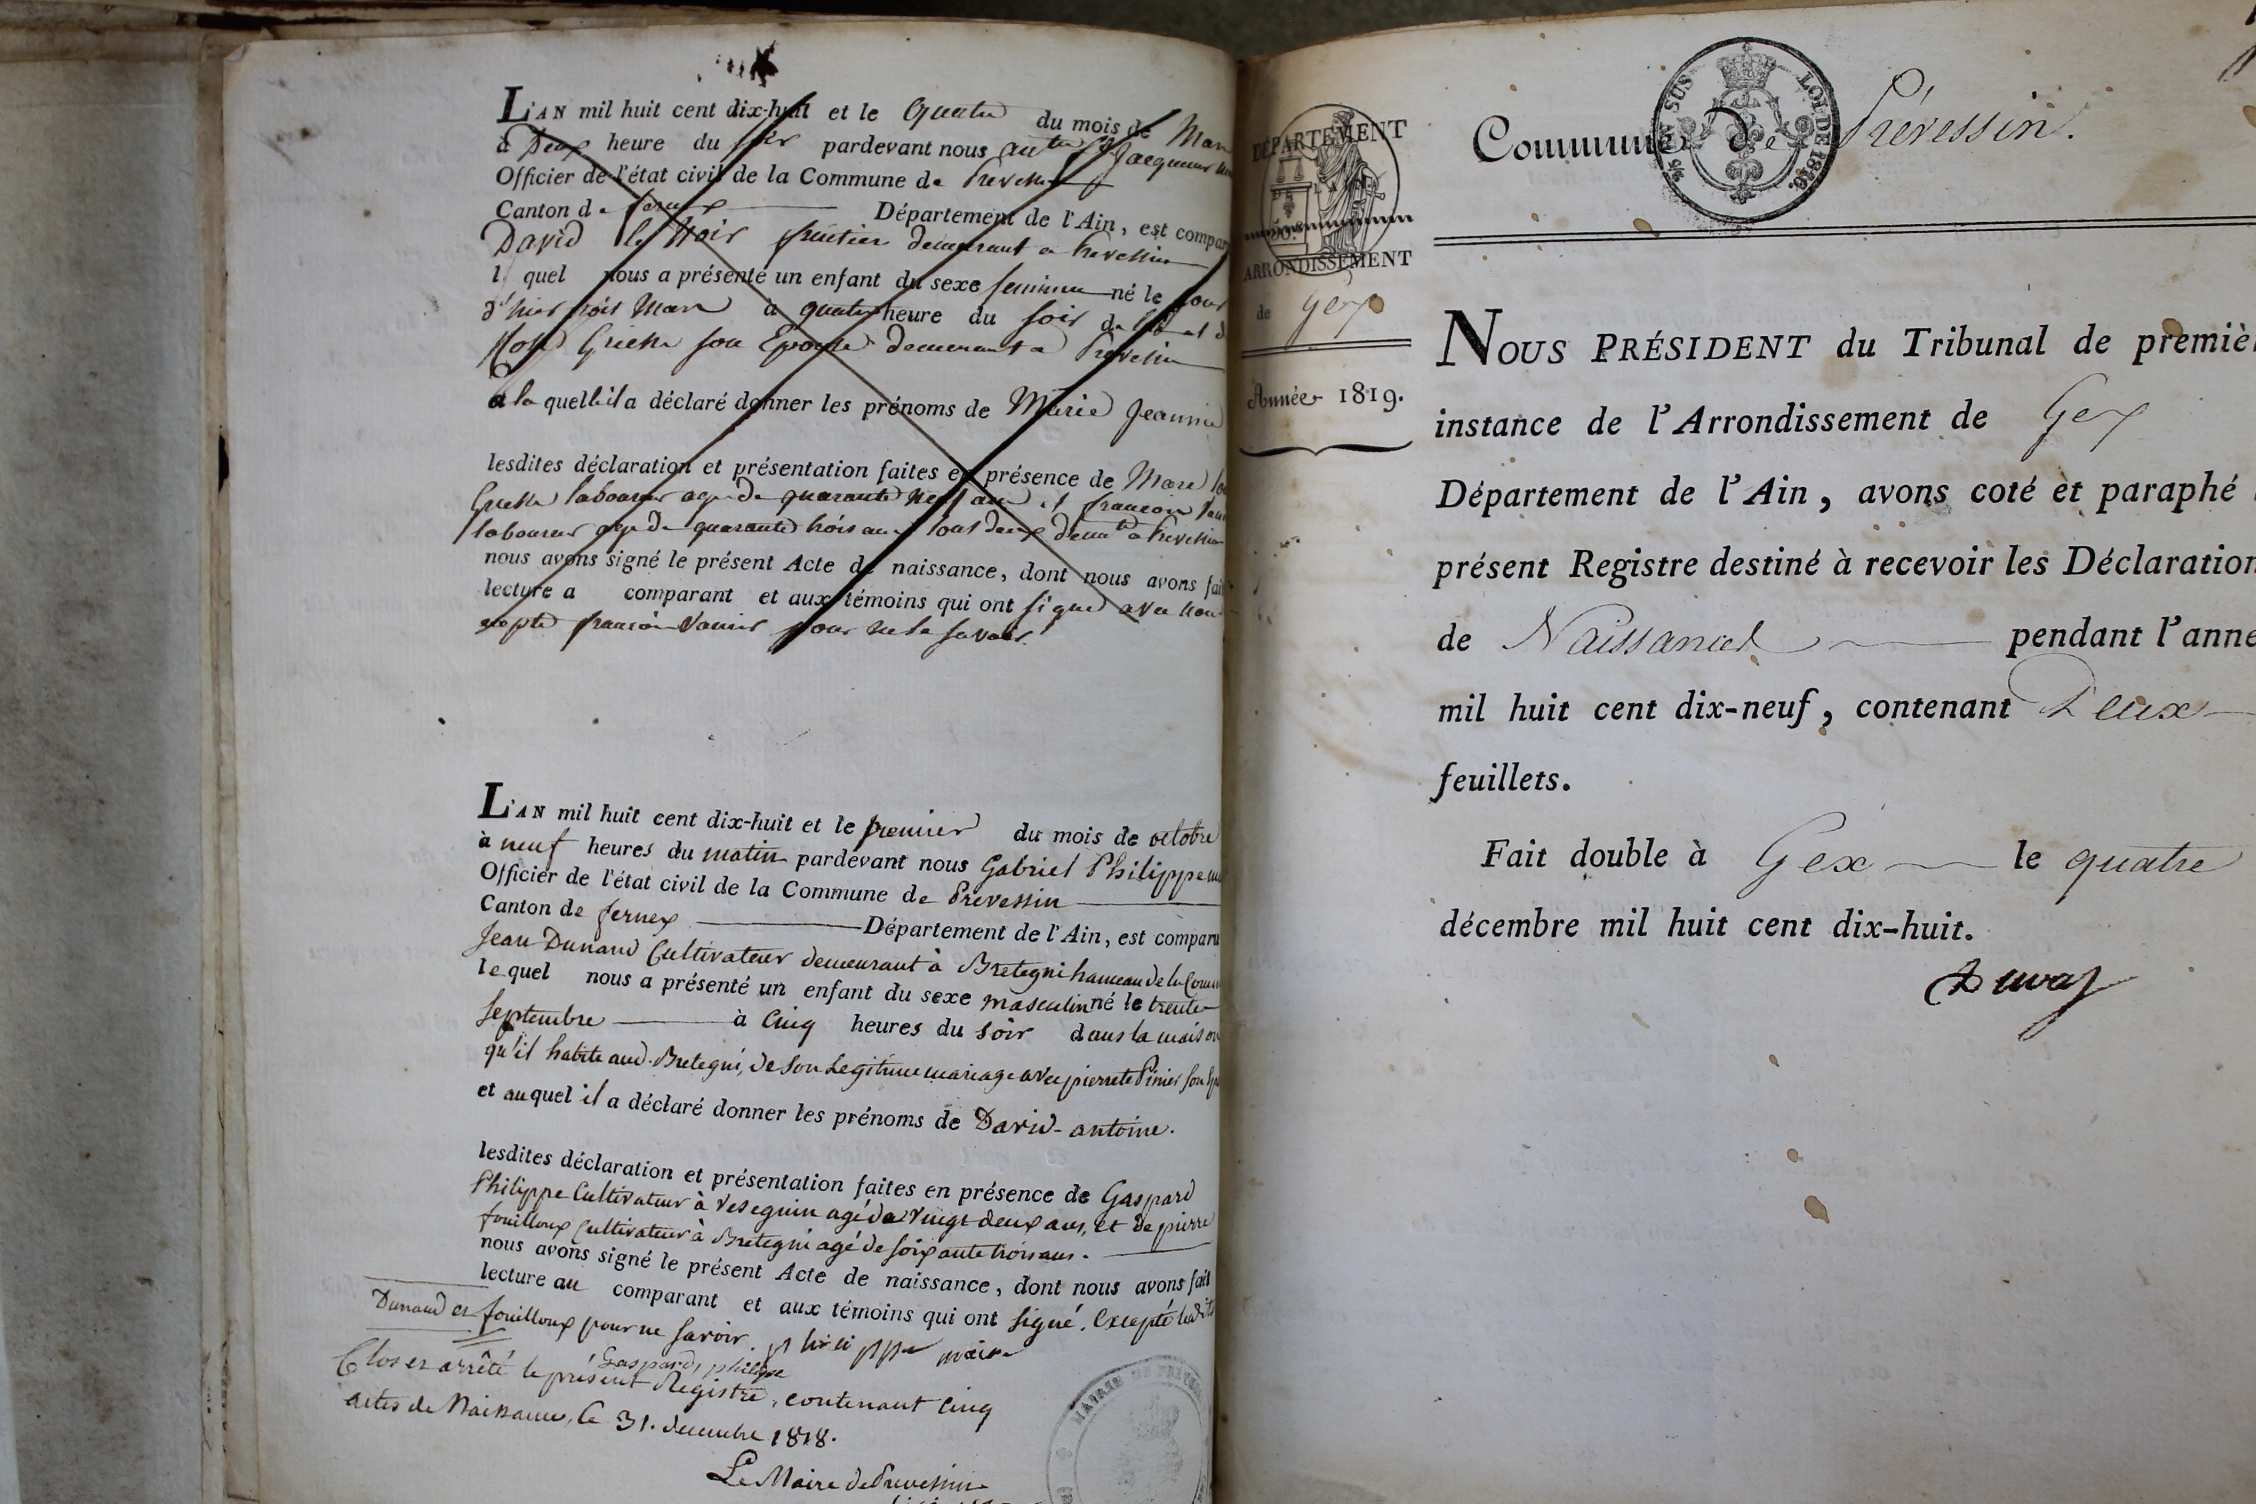 L'AN mil huit cent dix-huit et le Quatre du mois de Mars
à Deux heure du soir pardevant nous
Officier de l'état civil de la Commune de Prevessin
Canton de fernex Département de l'Ain, est compar
David le Noir demeurant a Prevessin
l quel nous a présenté un enfant du sexe feminin né le jour
d'hier trois Mars à quatre heure du soir de
son Epouse demeurant a Prevessin
a la quelle il a déclaré donner les prénoms de Marie Jeanne
lesdites déclaration et présentation faites en présence de Marc
laboureur agé de quarante neuf ans et francois
laboureur age de quarante trois ans tous deux demt a Prevessin
nous avons signé le présent Acte de naissance, dont nous avons fait
lecture a comparant et aux témoins qui ont signé avec nous
excepté francois pour ne le savoir
L'AN mil huit cent dix-huit et le premier du mois de octobre
à neuf heures du matin pardevant nous Gabriel Philippe
Officier de l'état civil de la Commune de Prevessin
Canton de fernex Département de l'Ain, est comparu
Jean Dunand Cultivateur demeurant à Bretegni hameau de la Comm
le quel nous a présenté un enfant du sexe masculin né le trente
Septembre à Cinq heures du soir dans la maison
qu'il habite aud. Bretegni, de son Legitime mariage avec pierrete Pinier son
et auquel il a déclaré donner les prénoms de David-antoine.
lesdites déclaration et présentation faites en présence de Gaspard
Philippe Cultivateur à Veseguin agé de vingt deux ans, et de pierre
fouilloux Cultivateur à Bretegni agé de soixante trois ans.
nous avons signé le présent Acte de naissance, dont nous avons fait
lecture au comparant et aux témoins qui ont signé. Excepté lesdits
Dunand et fouilloux pour ne savoir. philippe maire
Gaspard philippe
Clos et arrêté le présent Registre, contenant cinq
actes de Naissance, le 31. decembre 1818.
Le Maire de Prevessin
MAIRIE DE PREVES
DÉPARTEMENT
DE L'AIN
ARRONDISSEMENT
de Gex
Année 1819.
Commune de Prévessin.
EN SUS
LOI DE 1816.
NOUS PRÉSIDENT du Tribunal de premièr
instance de l'Arrondissement de Gex
Département de l'Ain, avons coté et paraphé
présent Registre destiné à recevoir les Déclaration
de Naissances pendant l'anné
mil huit cent dix-neuf, contenant Deux
feuillets.
Fait double à Gex le quatre
décembre mil huit cent dix-huit.